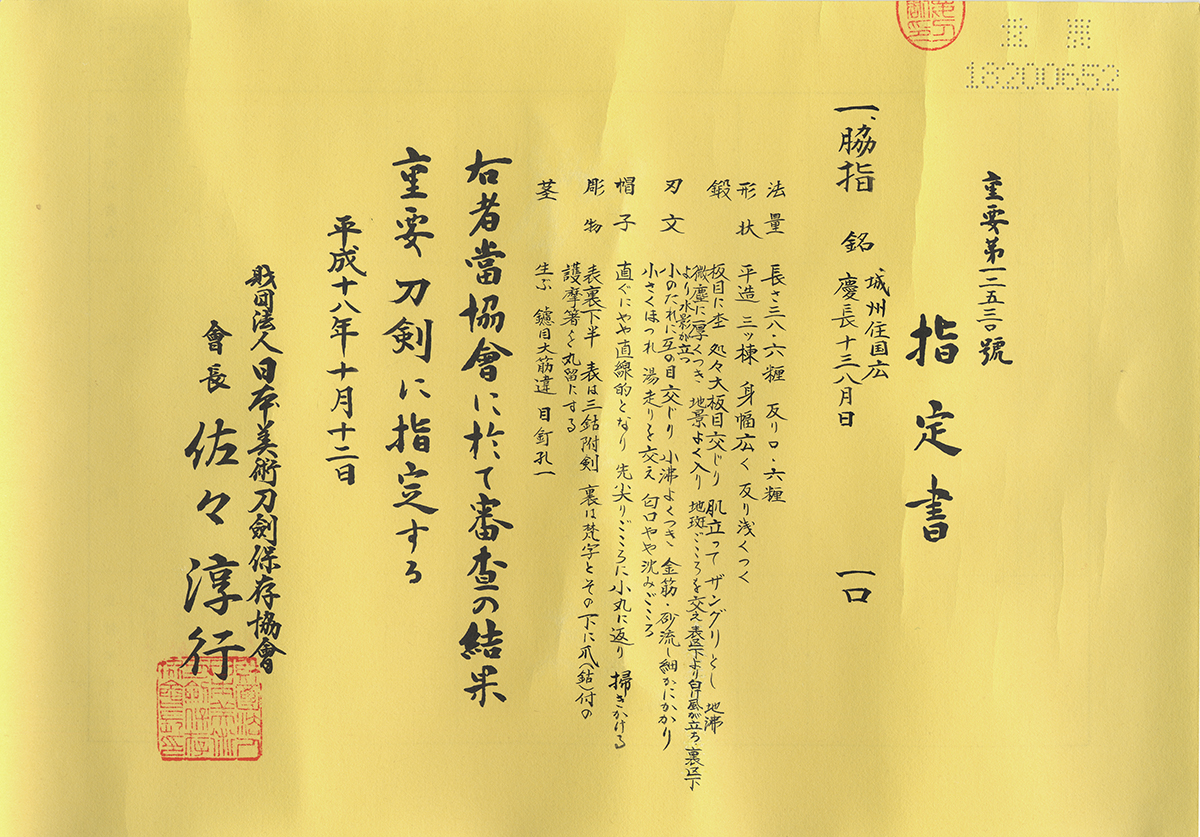 16200652
重要第一二五三〇號
指定書
一、脇指 銘 城州住国広
慶長十三八月日 一口
法量 長さ三八・六糎 反り〇・六糎
形状 平造 三ッ棟 身幅広く 反り浅くつく
鍛 板目に杢 処々大板目交じり 肌立ってザングリとし 地沸
微塵に厚くつき 地景よく入り 地斑ごころを交え 表区下より白け風が立ち 裏区下
より水影が立つ
刃文 小のたれに互の目交じり 小沸よくつき 金筋・砂流し細かにかかり
小さくほつれ 湯走りを交え 匂口やや沈みごころ
帽子 直ぐにやや直線的となり 先尖りごころに小丸に返り 掃きかける
彫物 表裏下半 表は三鈷附剣 裏は梵字とその下に爪(鈷)付の
護摩箸を丸留にする
茎 生ぶ 鑢目大筋違 目釘孔一
右者當協會に於て審査の結果
重要刀剣に指定する
平成十八年十月十二日
財団法人日本美術刀劍保存協會
會長 佐々淳行